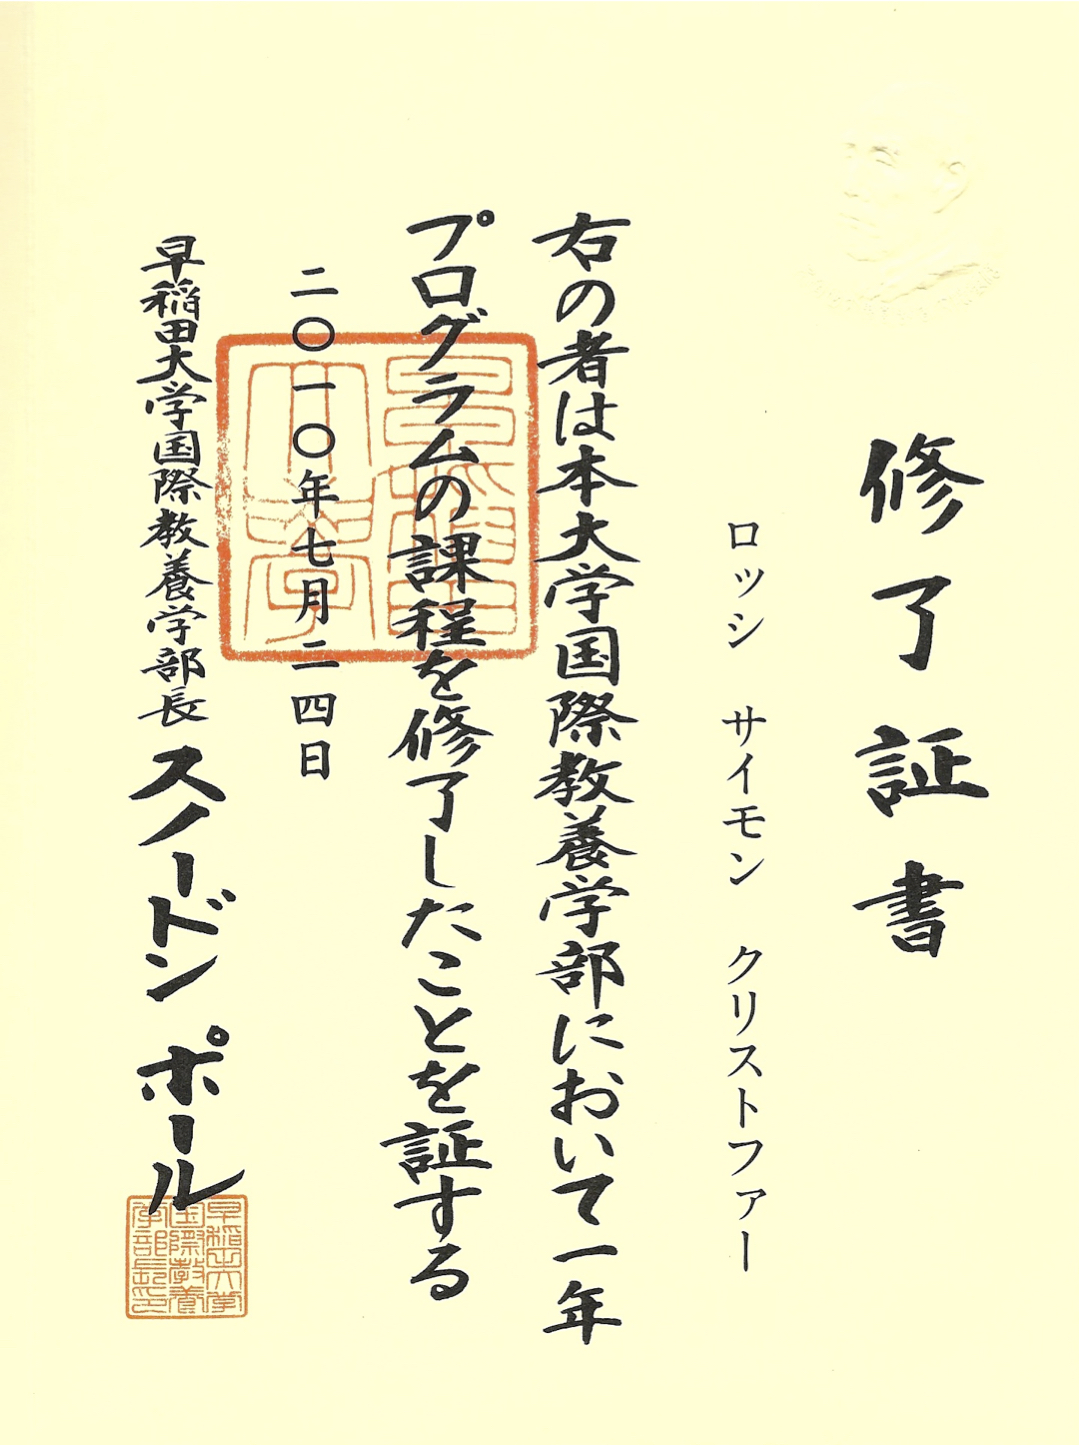 修了証書
ロッシ サイモン クリストファー
右の者は本大学国際教養学部において一年
プログラムの課程を修了したことを証する
二〇一〇年七月二四日
早稲田大学国際教養学部長 スノードン ポール
早稲田大学
早稲田大学
国際教養
学部長印